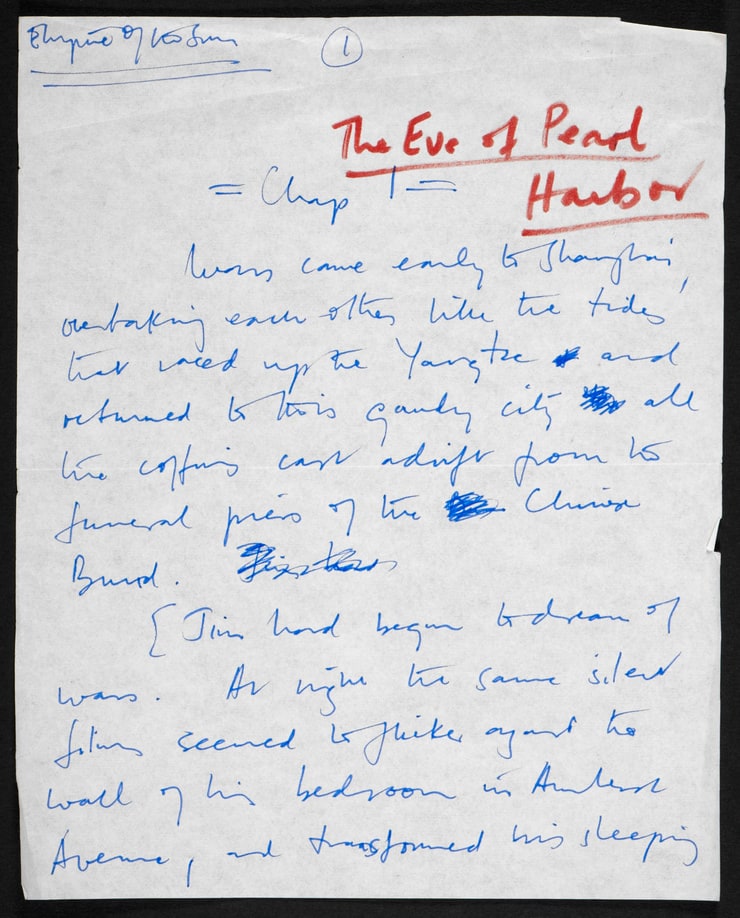 Empire of the Sun
1
The Eve of Pearl
Harbor
= Chap 1 =
Wars came early to Shanghai,
overtaking each other like the tides
that raced up the Yangtze and
returned to this gaudy city all
the coffins cast adrift from the
funeral piers of the Chinese
Bund.
[ Jim had begun to dream of
wars. At night the same silent
films seemed to flicker against the
wall of his bedroom in Amherst
Avenue, and transformed his sleeping